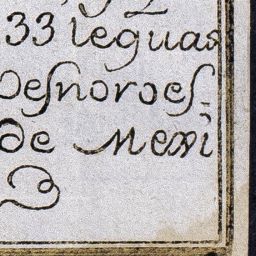 33 leguas
Desnordes.
de Mexi